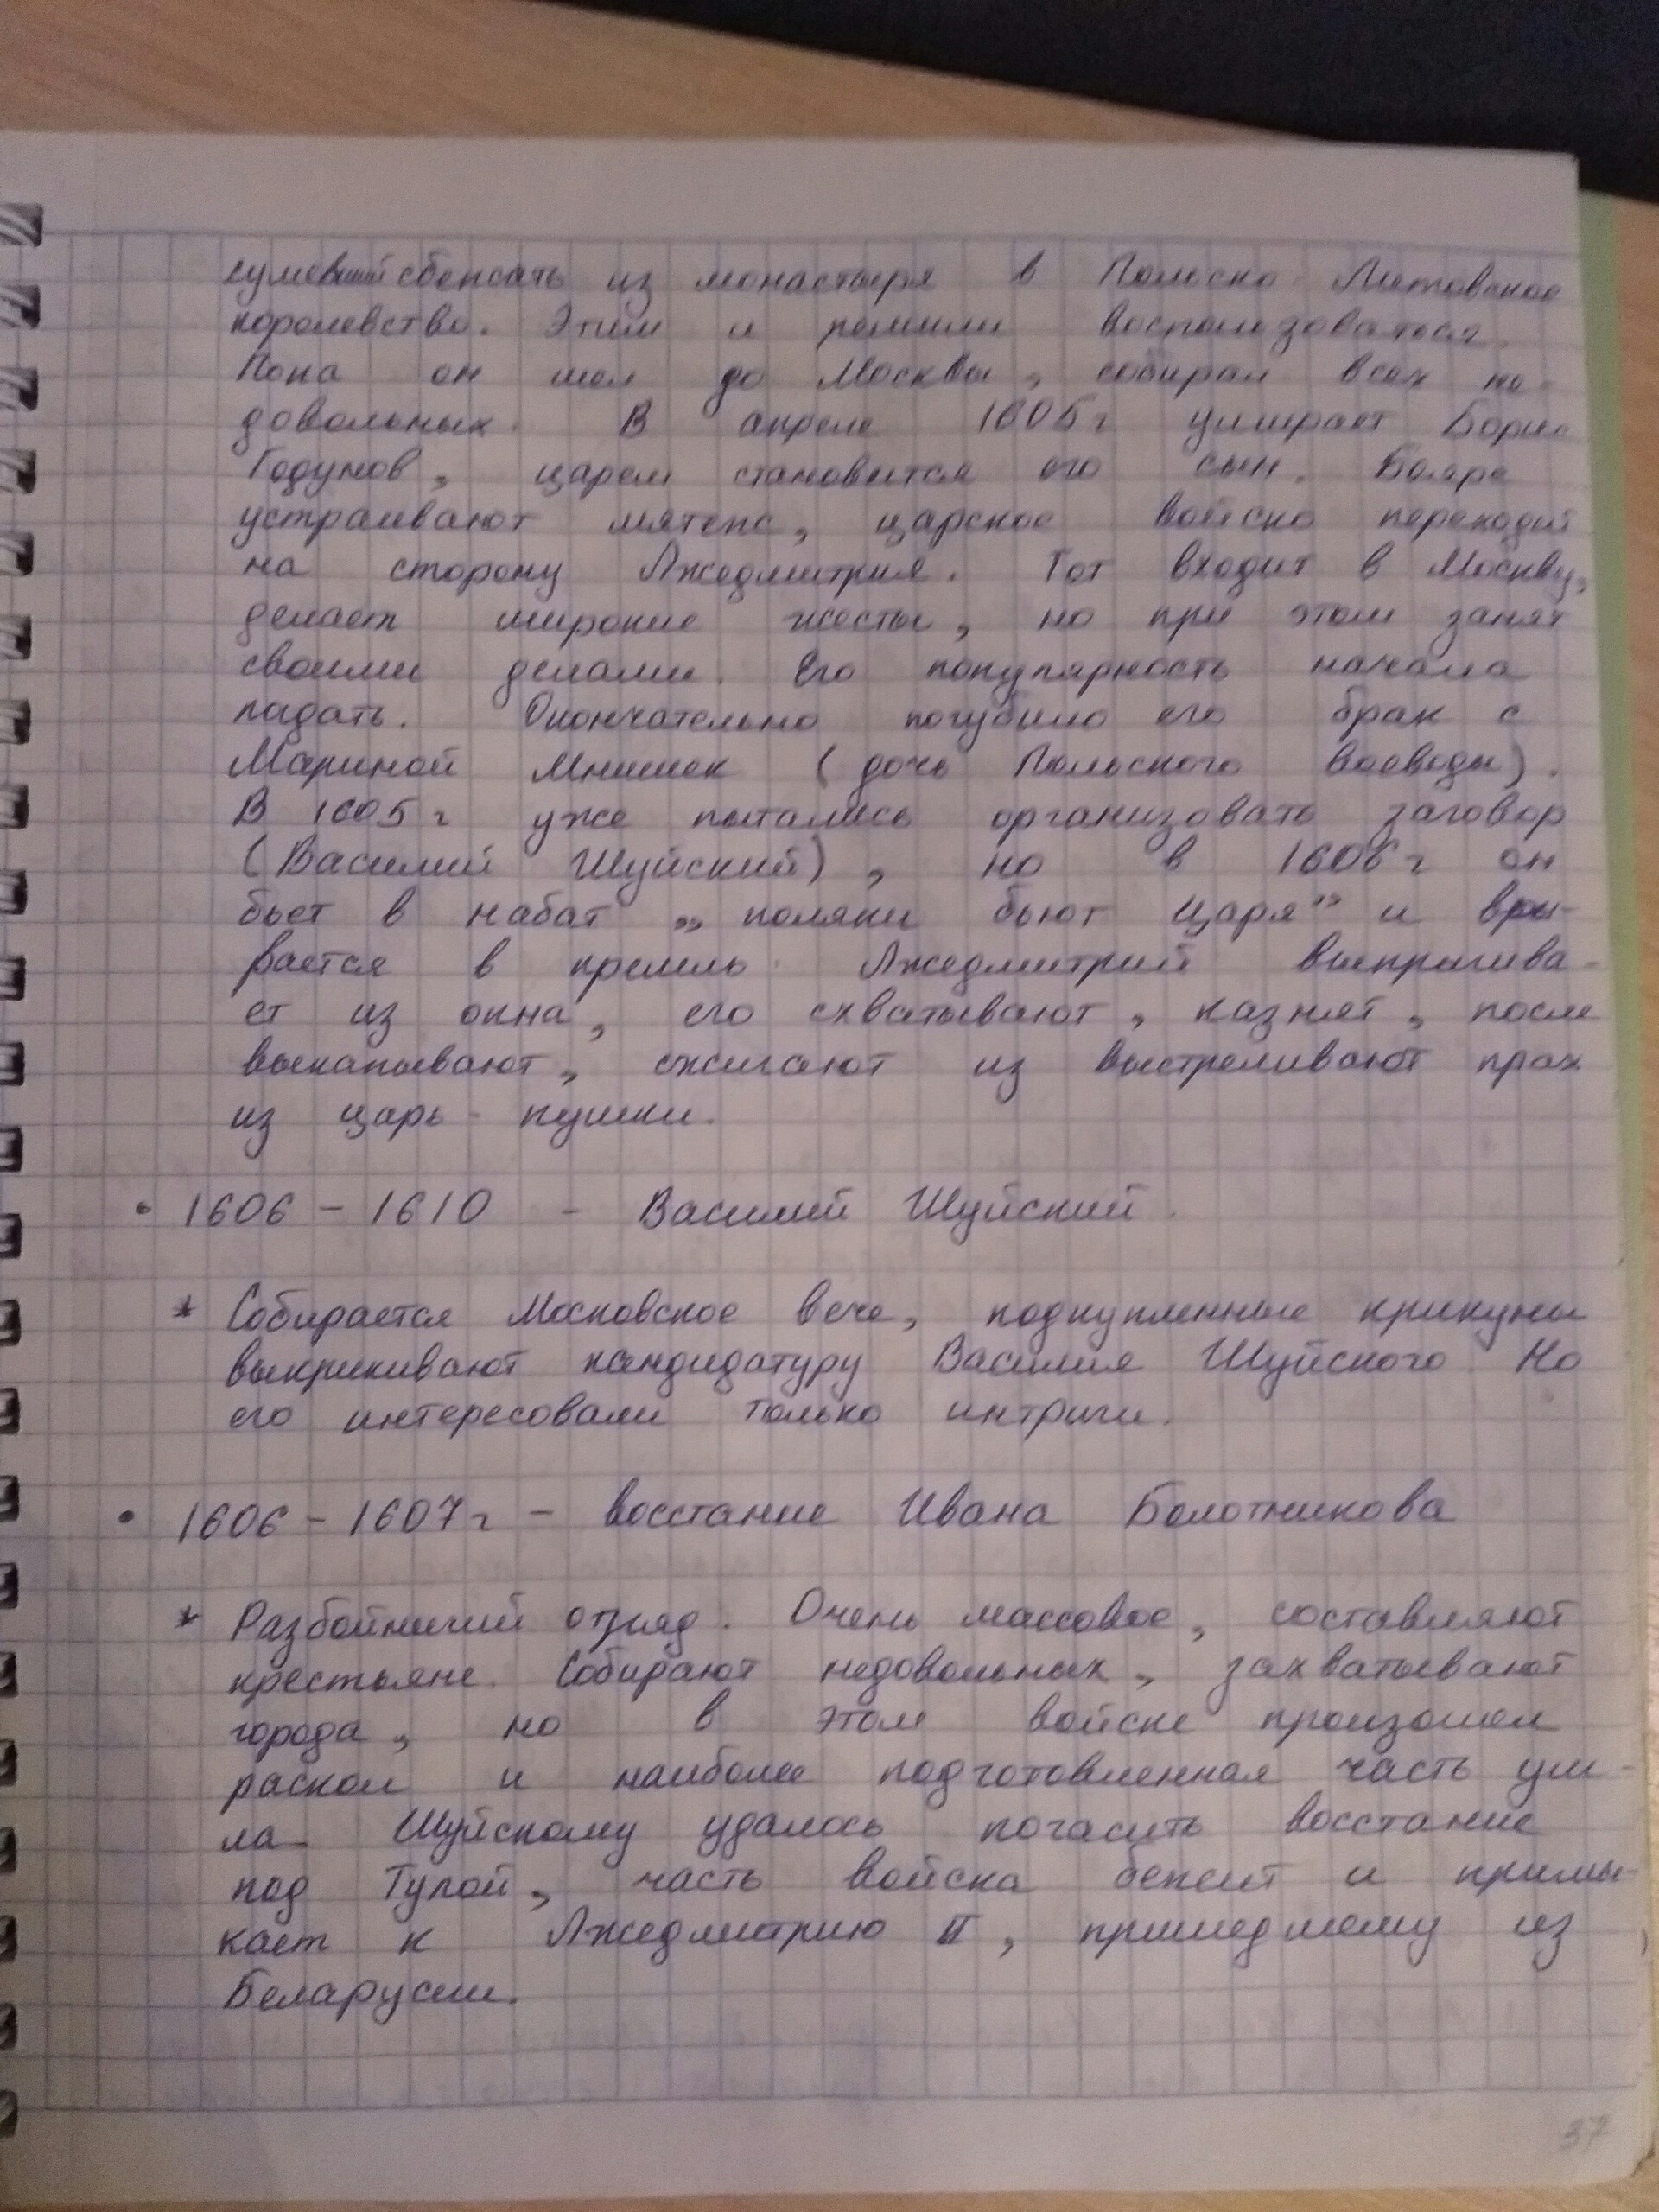 сумевший сбежать из монастыря в Польско-Литовское
королевство. Этим и решили воспользоваться.
Пока он шел до Москвы, собирал всех не-
довольных. В апреле 1605 г умирает Борис
Годунов, царем становится его сын. Бояре
устраивают мятеж, царское войско переходит
на сторону Лжедмитрия. Тот входит в Москву,
делает широкие жесты, но при этом занят
своими делами. Его популярность начала
падать. Окончательно погубило его брак с
Мариной Мнишек (дочь Польского воеводы).
В 1605 г уже пытались организовать заговор
(Василий Шуйский), но в 1606 г он
бьет в набат „поляки бьют царя” и вры-
вается в кремль. Лжедмитрий выпрыгива-
ет из окна, его схватывают, казнят, после
выкапывают, сжигают из выстреливают прах
из царь-пушки.
• 1606 – 1610 – Василий Шуйский.
* Собирается Московское вече, подкупленные крикуны
выкрикивают кандидатуру Василия Шуйского. Но
его интересовали только интриги.
• 1606 – 1607 г – восстание Ивана Болотникова
* Разбойничий отряд. Очень массовое, составляют
крестьяне. Собирают недовольных, захватывают
города, но в этом войске произошел
раскол и наиболее подготовленная часть уш-
ла. Шуйскому удалось погасить восстание
под Тулой, часть войска бежит и примы-
кает к Лжедмитрию II, пришедшему из
Беларусии.
37